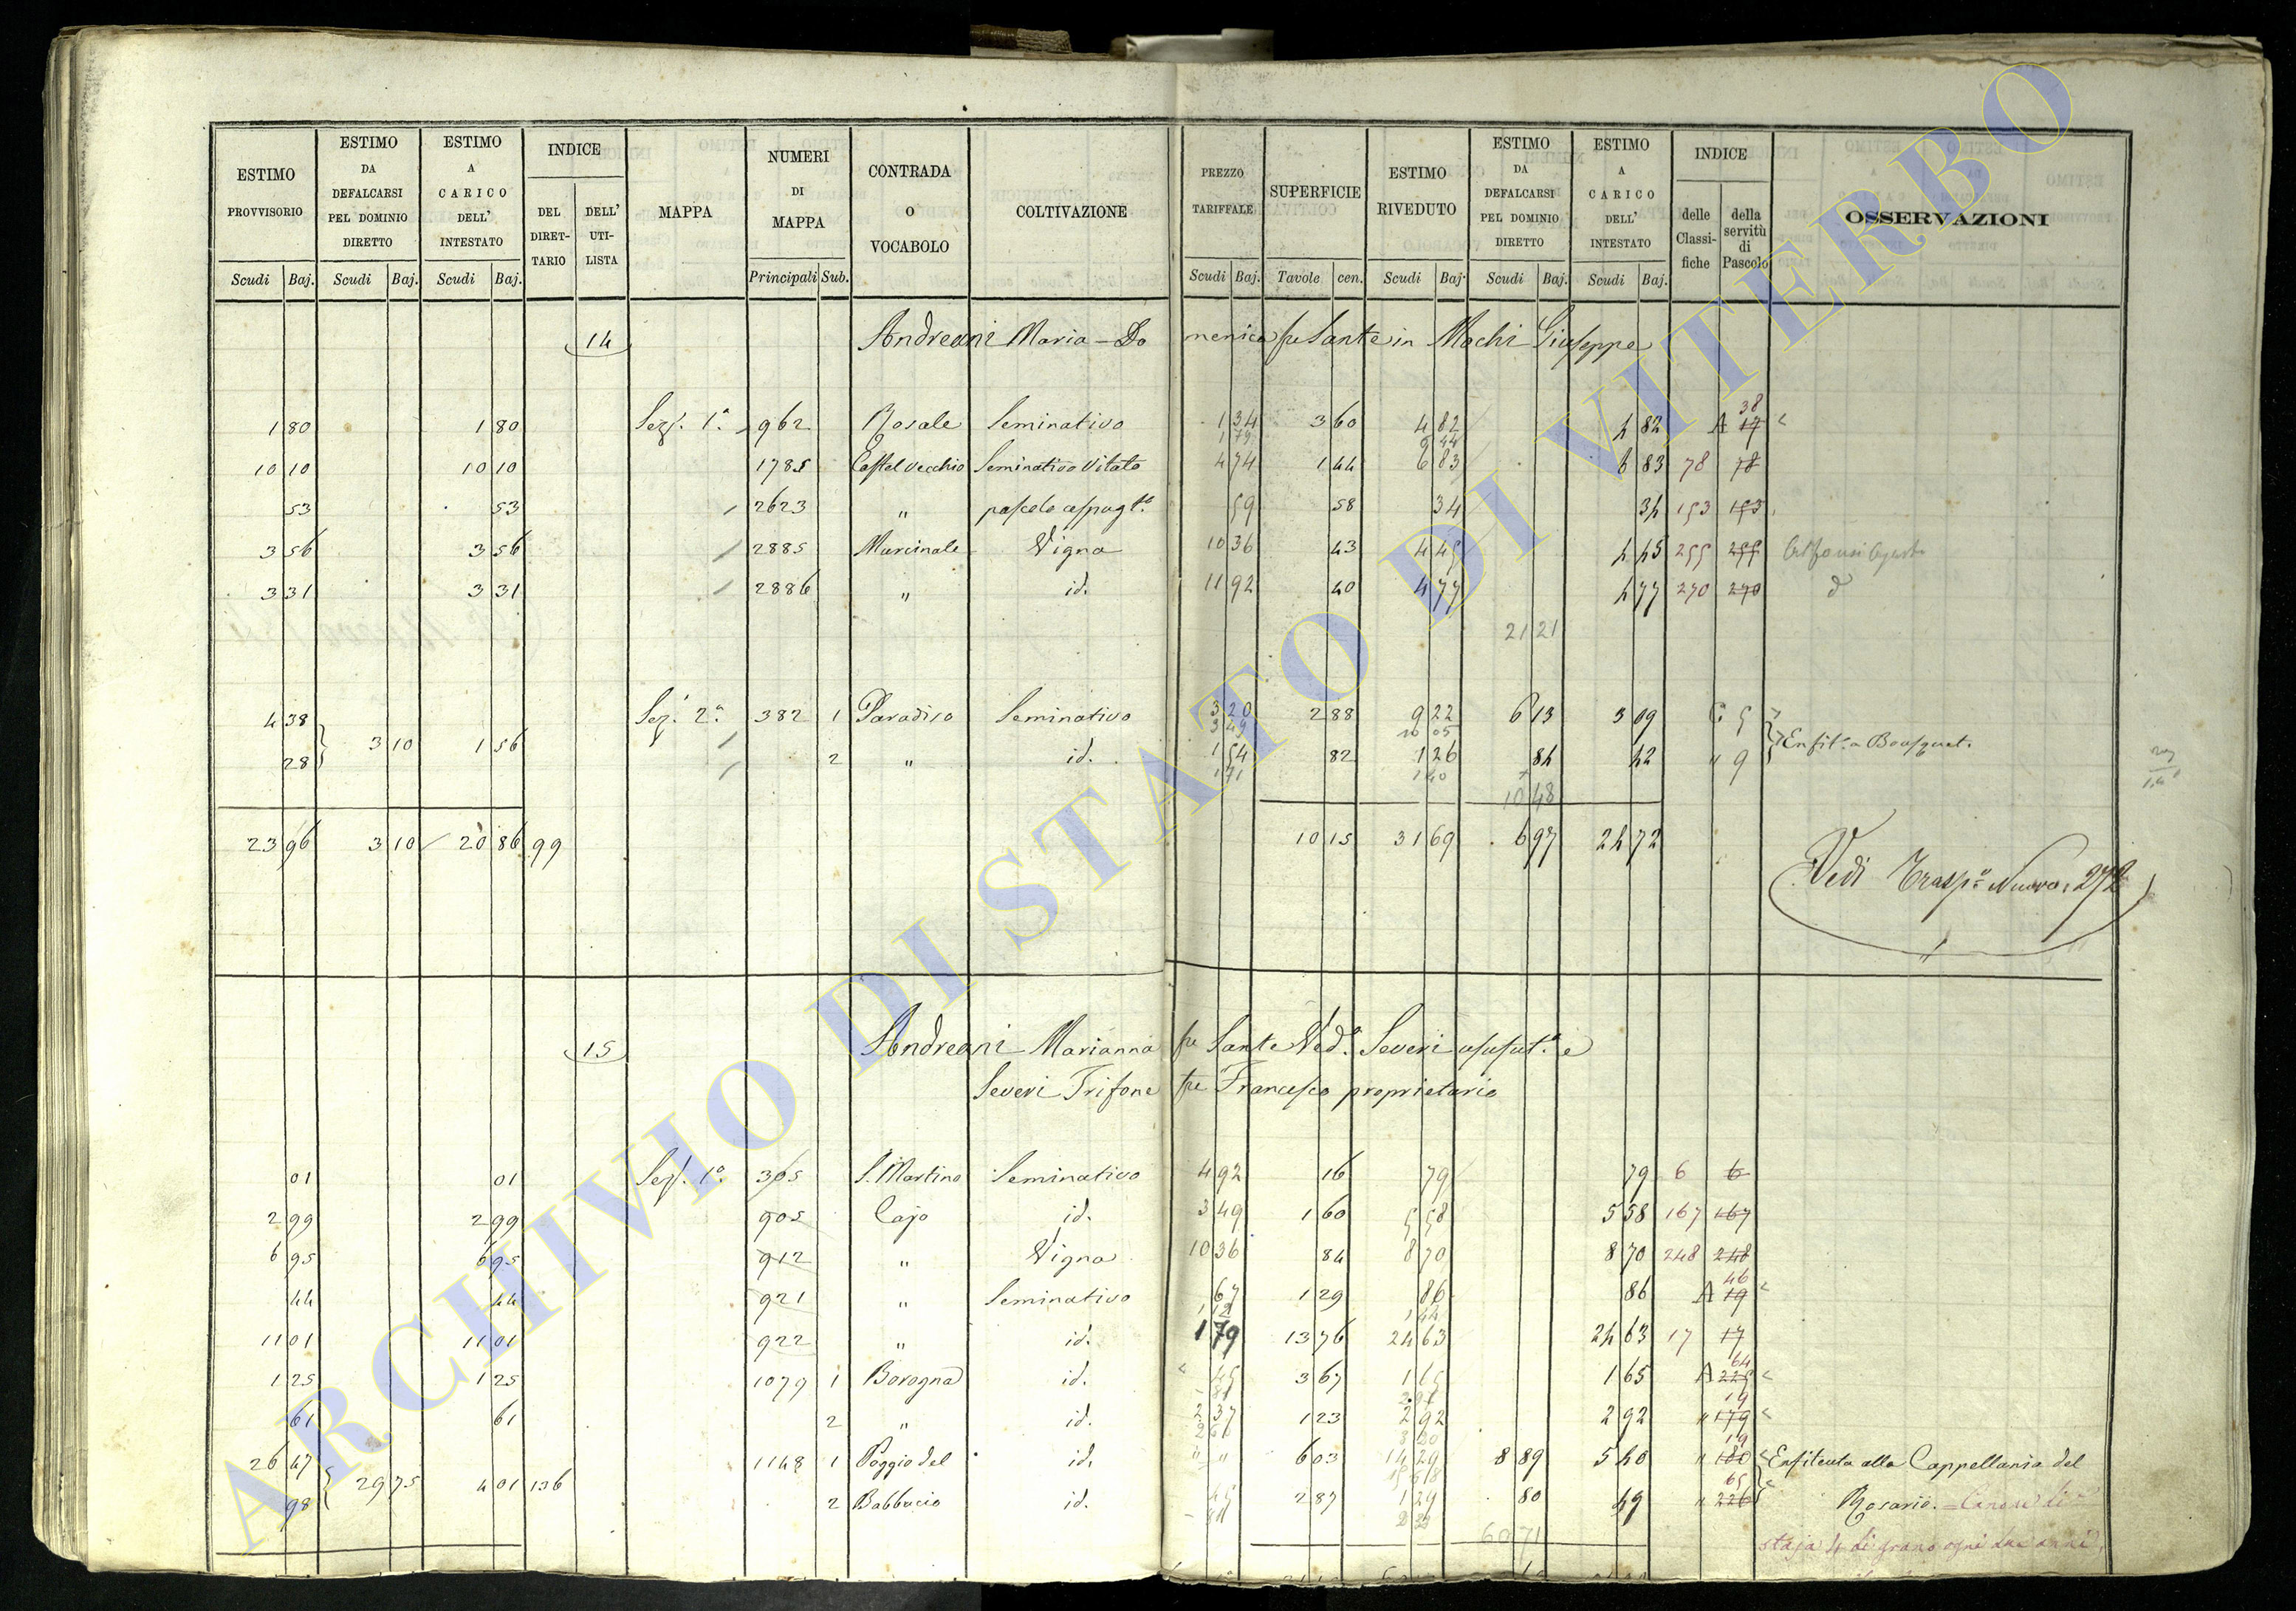 ESTIMO PROVVISORIO | ESTIMO DA DEFALCARSI PEL DOMINIO DIRETTO | ESTIMO A CARICO DELL' INTESTATO | INDICE | MAPPA | NUMERI DI MAPPA | CONTRADA O VOCABOLO | COLTIVAZIONE | PREZZO TARIFFALE | SUPERFICIE | ESTIMO RIVEDUTO | ESTIMO DA DEFALCARSI PEL DOMINIO DIRETTO | ESTIMO A CARICO DELL' INTESTATO | INDICE | OSSERVAZIONI
DEL DIRETTARIO | DELL' UTILISTA | delle Classifiche | della servitù di Pascolo
Scudi | Baj. | Scudi | Baj. | Scudi | Baj. | Principali | Sub. | Scudi | Baj. | Tavole | cen. | Scudi | Baj. | Scudi | Baj. | Scudi | Baj.
14 Andreani Maria-Domenica fu Sante in Mochi Giuseppe
1 80 | 1 80 | Sez. 1ª | 962 | Rosale | Seminativo | 1 34 | 3 60 | 4 82 | 4 82 | A 17 38
1 79 | 6 44
10 10 | 10 10 | 1785 | Castel Vecchio | Seminativo Vitato | 4 74 | 1 44 | 6 83 | 6 83 | 78 | 78
53 | 53 | 2623 | " | pascolo cespugto | 59 | 58 | 34 | 34 | 153 | 153
3 56 | 3 56 | 2885 | Murcinale | Vigna | 10 36 | 43 | 4 45 | 4 45 | 255 | 255
3 31 | 3 31 | 2886 | " | id. | 11 92 | 40 | 4 77 | 4 77 | 270 | 270
21 21
4 38 | Sez. 2ª | 382 | 1 | Paradiso | Seminativo | 3 20 | 2 88 | 9 22 | 6 13 | 3 09 | C 5
3 49 | 10 05
3 10 | 1 56 | Enfit. a Bousquet.
28 | 2 | " | id. | 1 54 | 82 | 1 26 | 84 | 42 | " 9
1 71 | 1 40
10 48
23 96 | 3 10 | 20 86 | 99 | 10 15 | 31 69 | 6 97 | 24 72
Vedi Trasp. Nuovo 272
15 Andreani Marianna fu Sante Ved. Severi usufut.a e
Severi Trifone fu Francesco proprietario
01 | 01 | Sez. 1ª | 305 | S. Martino | Seminativo | 4 92 | 16 | 79 | 79 | 6 | 6
2 99 | 2 99 | 905 | Cajo | id. | 3 49 | 1 60 | 5 58 | 5 58 | 167 | 167
6 95 | 6 95 | 912 | " | Vigna | 10 36 | 84 | 8 70 | 8 70 | 248 | 248
44 | 44 | 921 | " | Seminativo | 67 | 1 29 | 86 | 86 | A 19 46
1 12 | 1 44
11 01 | 11 01 | 922 | " | id. | 1 79 | 13 76 | 24 63 | 24 63 | 17 | 17
1 25 | 1 25 | 1079 | 1 | Borogna | id. | 45 | 3 67 | 1 65 | 1 65 | A 225 64
61 | 61 | 2 | " | id. | 2 37 | 1 23 | 2 92 | 2 92 | " 179 19
26 47 | 1148 | 1 | Poggio del | id. | 6 03 | 14 29 | 8 89 | 5 40 | " 180 19 | Enfiteuta alla Cappellania del
29 75 | 4 01 | 136
98 | 2 | Babbucio | id. | 45 | 2 87 | 1 29 | 80 | 49 | " 226 65 | Rosario. Canone di
60 71
staja 4 di grano ogni due anni
ARCHIVIO DI STATO DI VITERBO